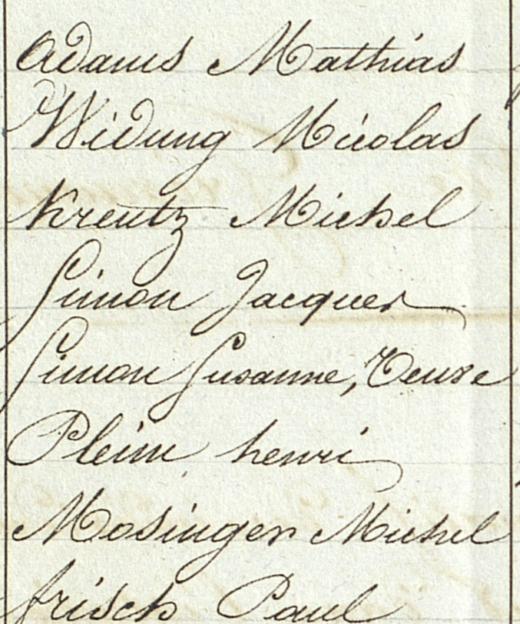 Adams Mathias
Widung Nicolas
Kreutz Michel
Simon Jacques
Simon Susanne, Veuve
Plein henri
Mosinger Michel
frisch Paul